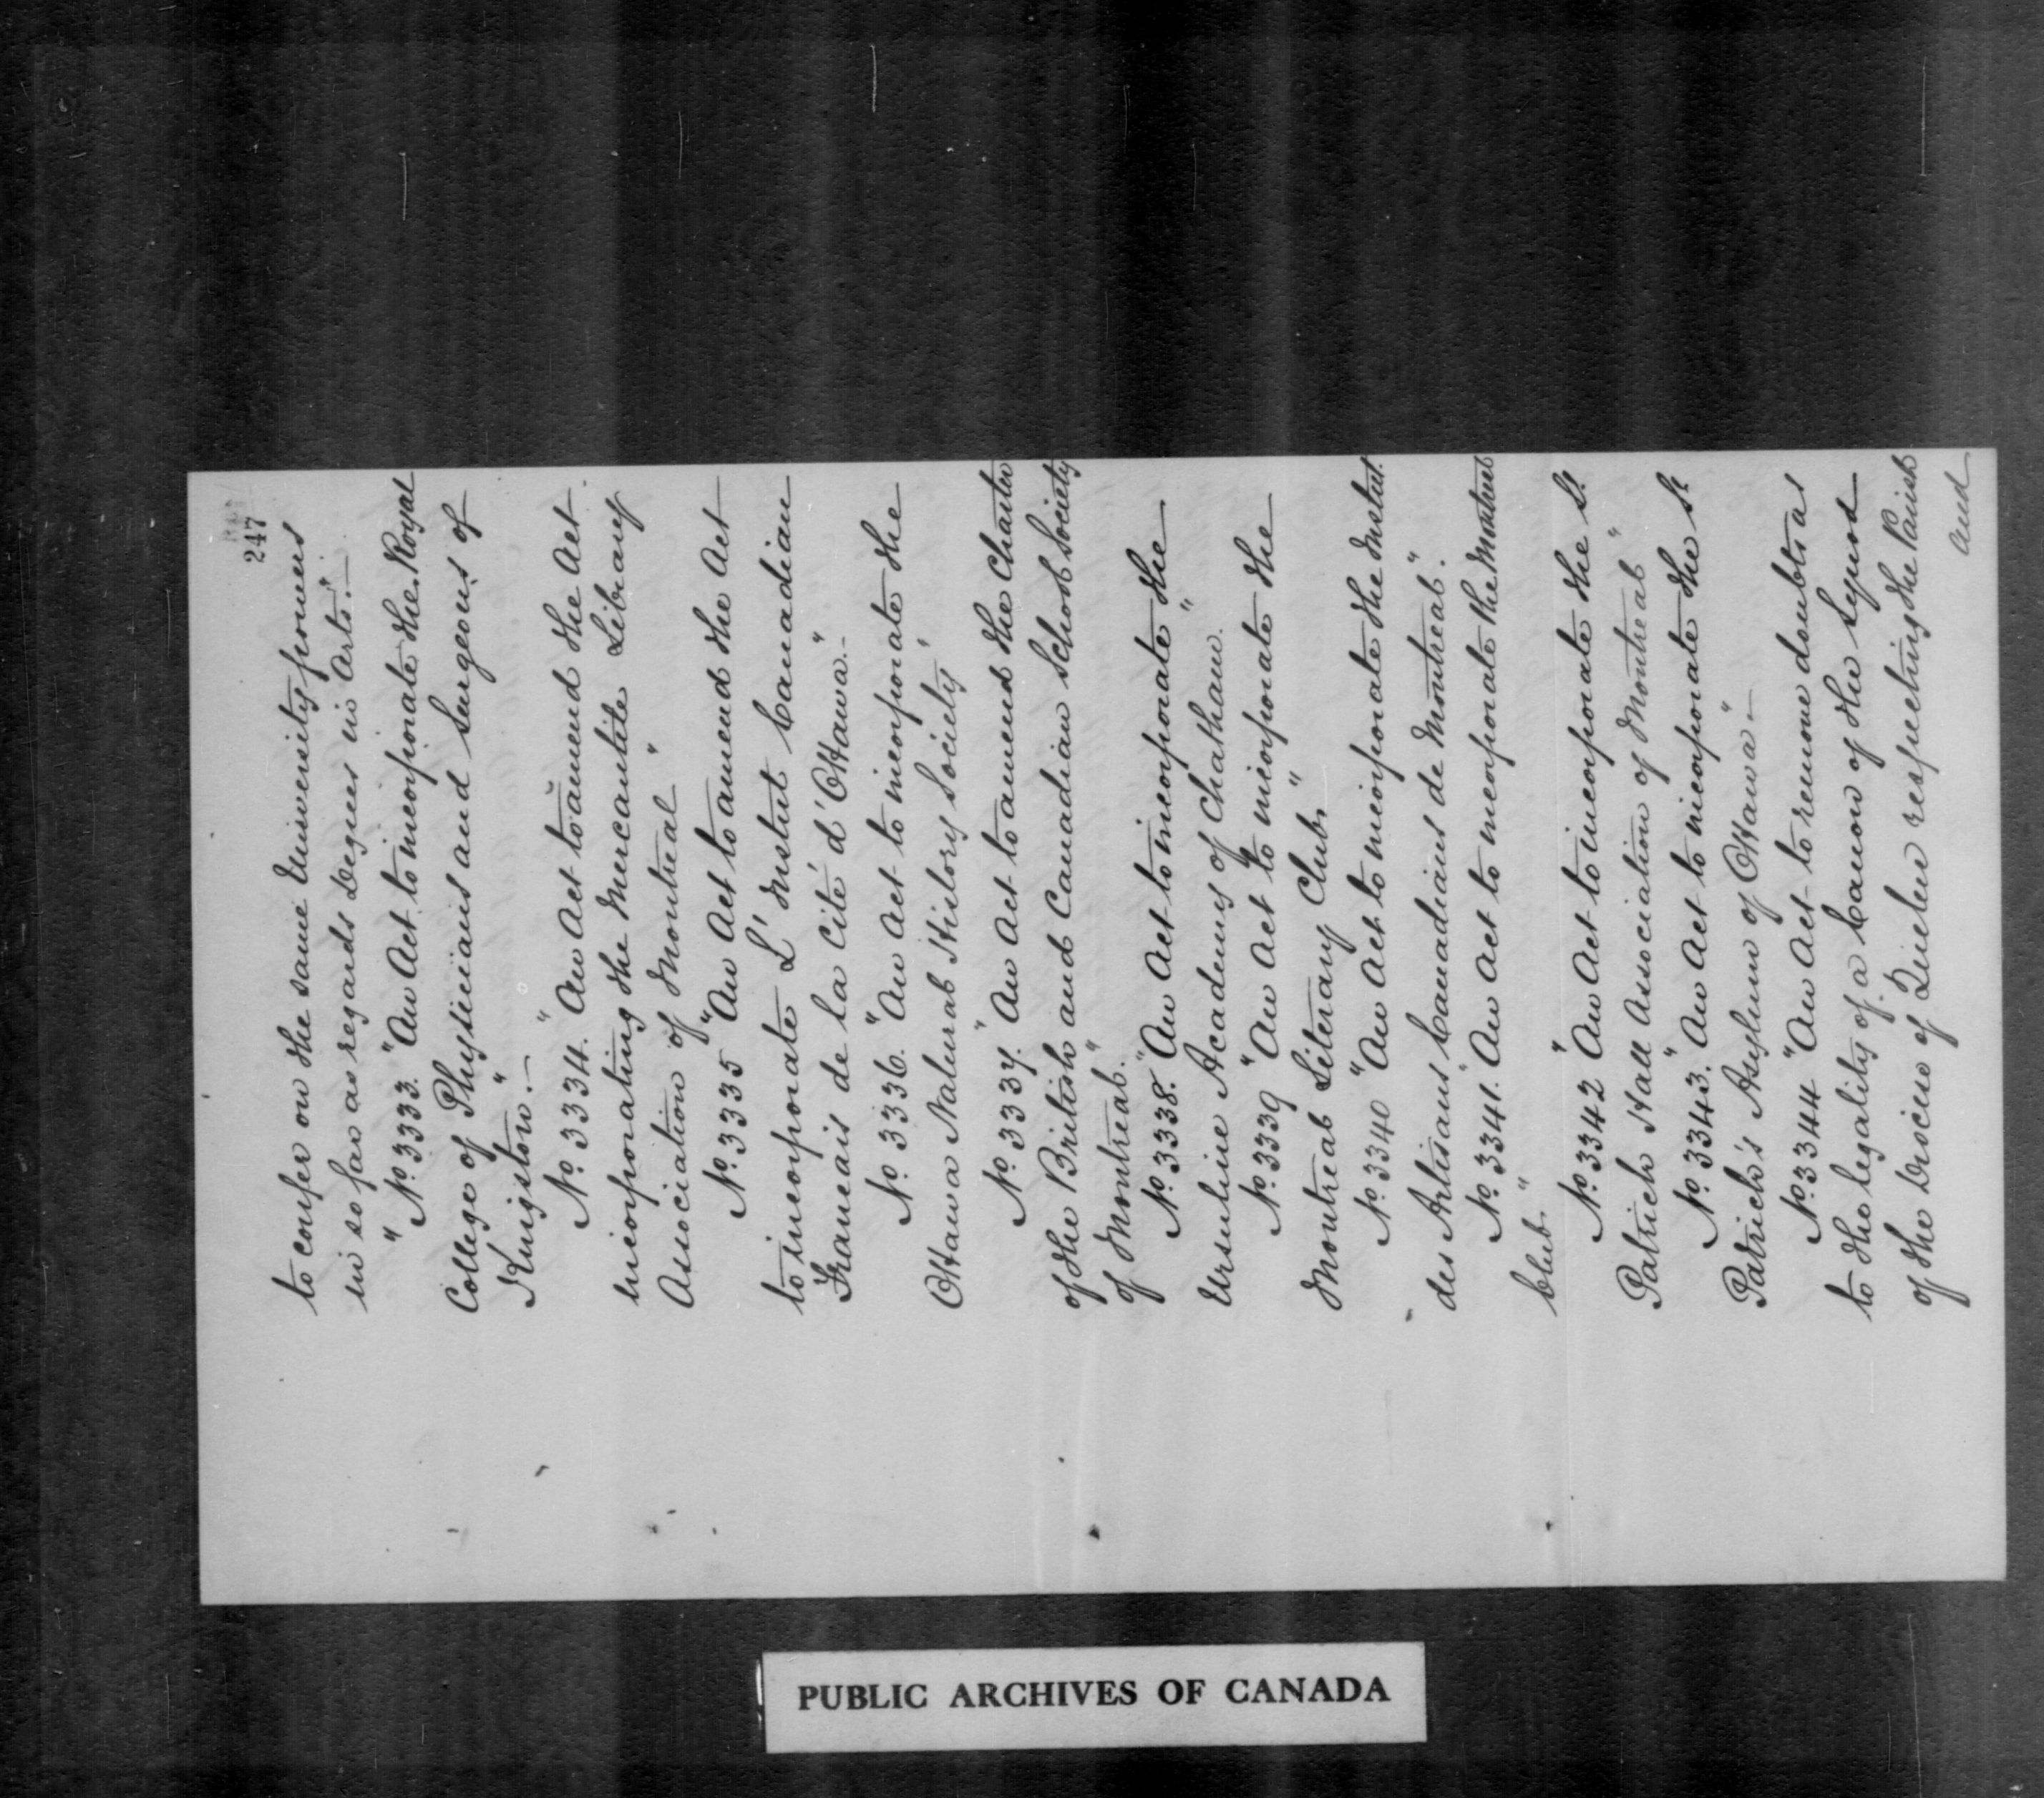 247
to confer on the same University powers
in so far as regards Degrees in Arts".—
" No. 3333. "An Act to incorporate the Royal
College of Physicians and Surgeons of
Kingston".—
No. 3334. "An Act to amend the Act
incorporating the Mercantile Library
Association of Montreal"
No. 3335 "An Act to amend the Act
to incorporate L'Institut Canadian
Francais de la Cité d'Ottawa".—
No. 3336. "An Act to incorporate the
Ottawa Natural History Society"
No. 3337. "An Act to amend the Charter
of the British and Canadian School Society
of Montreal."
No. 3338. "An Act to incorporate the
Ursuline Academy of Chatham."
No. 3339 "An Act to incorporate the
Montreal Literary Club."
No. 3340 "An Act to incorporate the Institut
des Artisans Canadians de Montreal".
No. 3341. "An Act to incorporate the Montreal
Club."
No. 3342 "An Act to incorporate the St.
Patrick Hall Association of Montreal"
No. 3343. "An Act to incorporate the St.
Patrick's Asylum of Ottawa".—
No. 3344 "An Act to remove doubts as
to the legality of a Canon of the Synod
of the Diocese of Quebec respecting the Parish
and
PUBLIC ARCHIVES OF CANADA